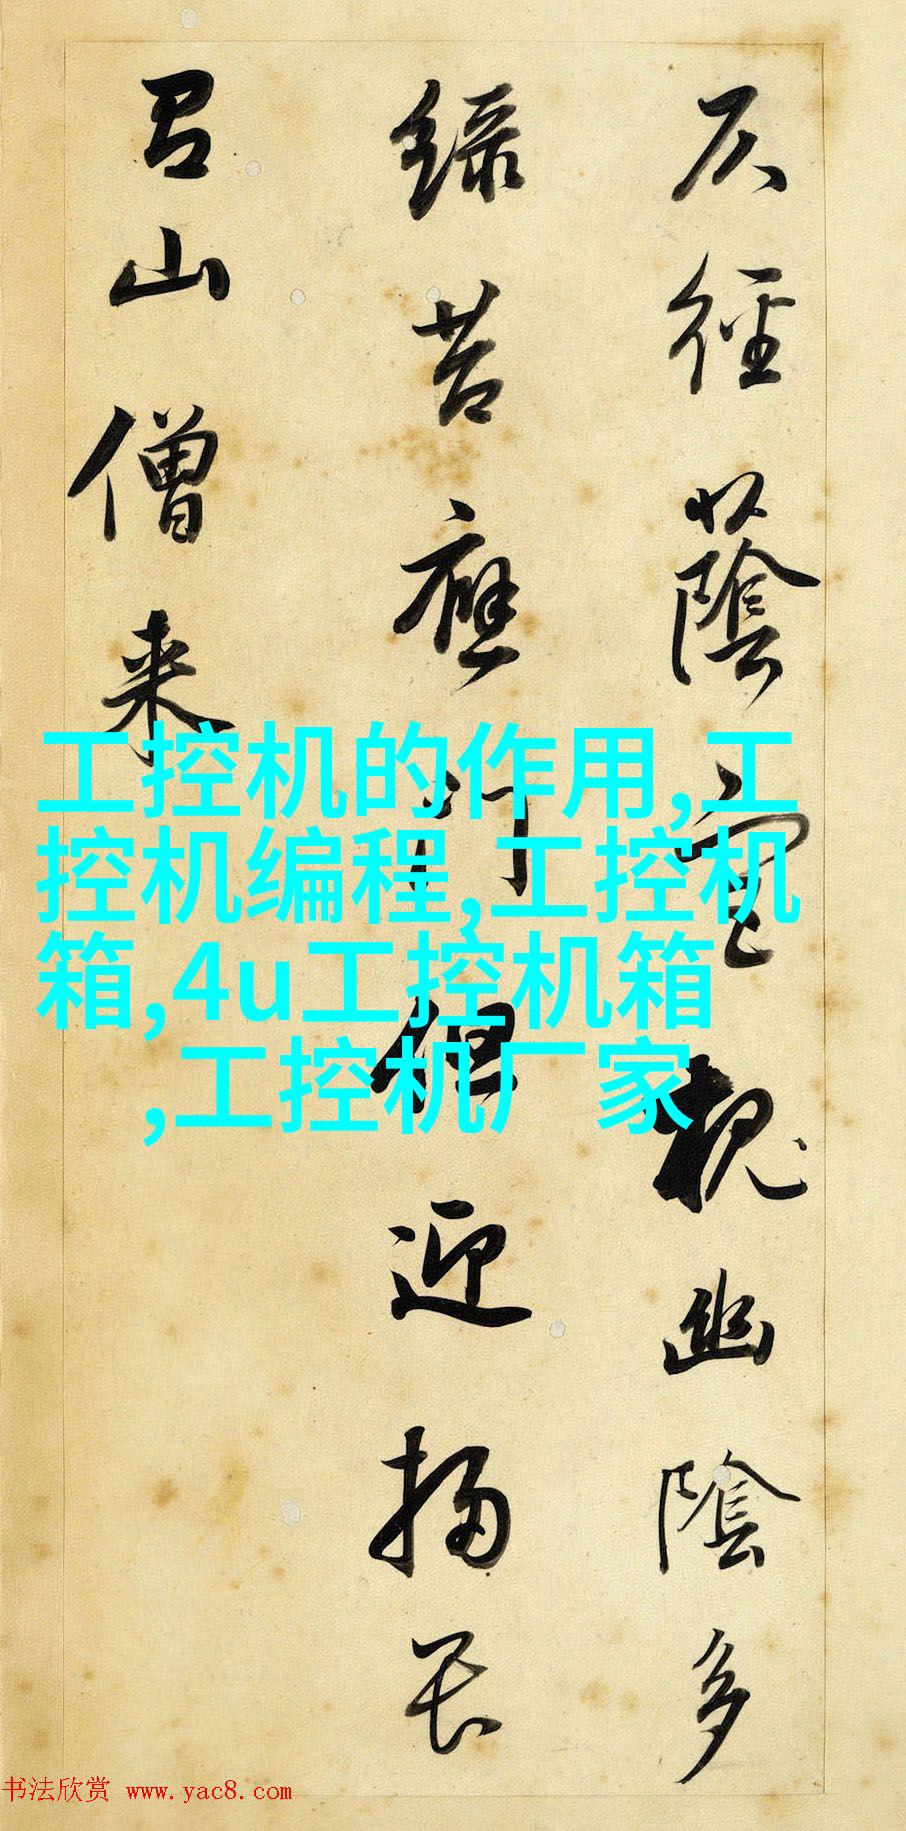 仄徑蔭宮槐幽陰多
綠苔應門但迎掃畏
有山僧来
工控机的作用,工
控机编程,工控机
箱,4u工控机箱
,工控机厂家
书法欣赏 www.yac8.com